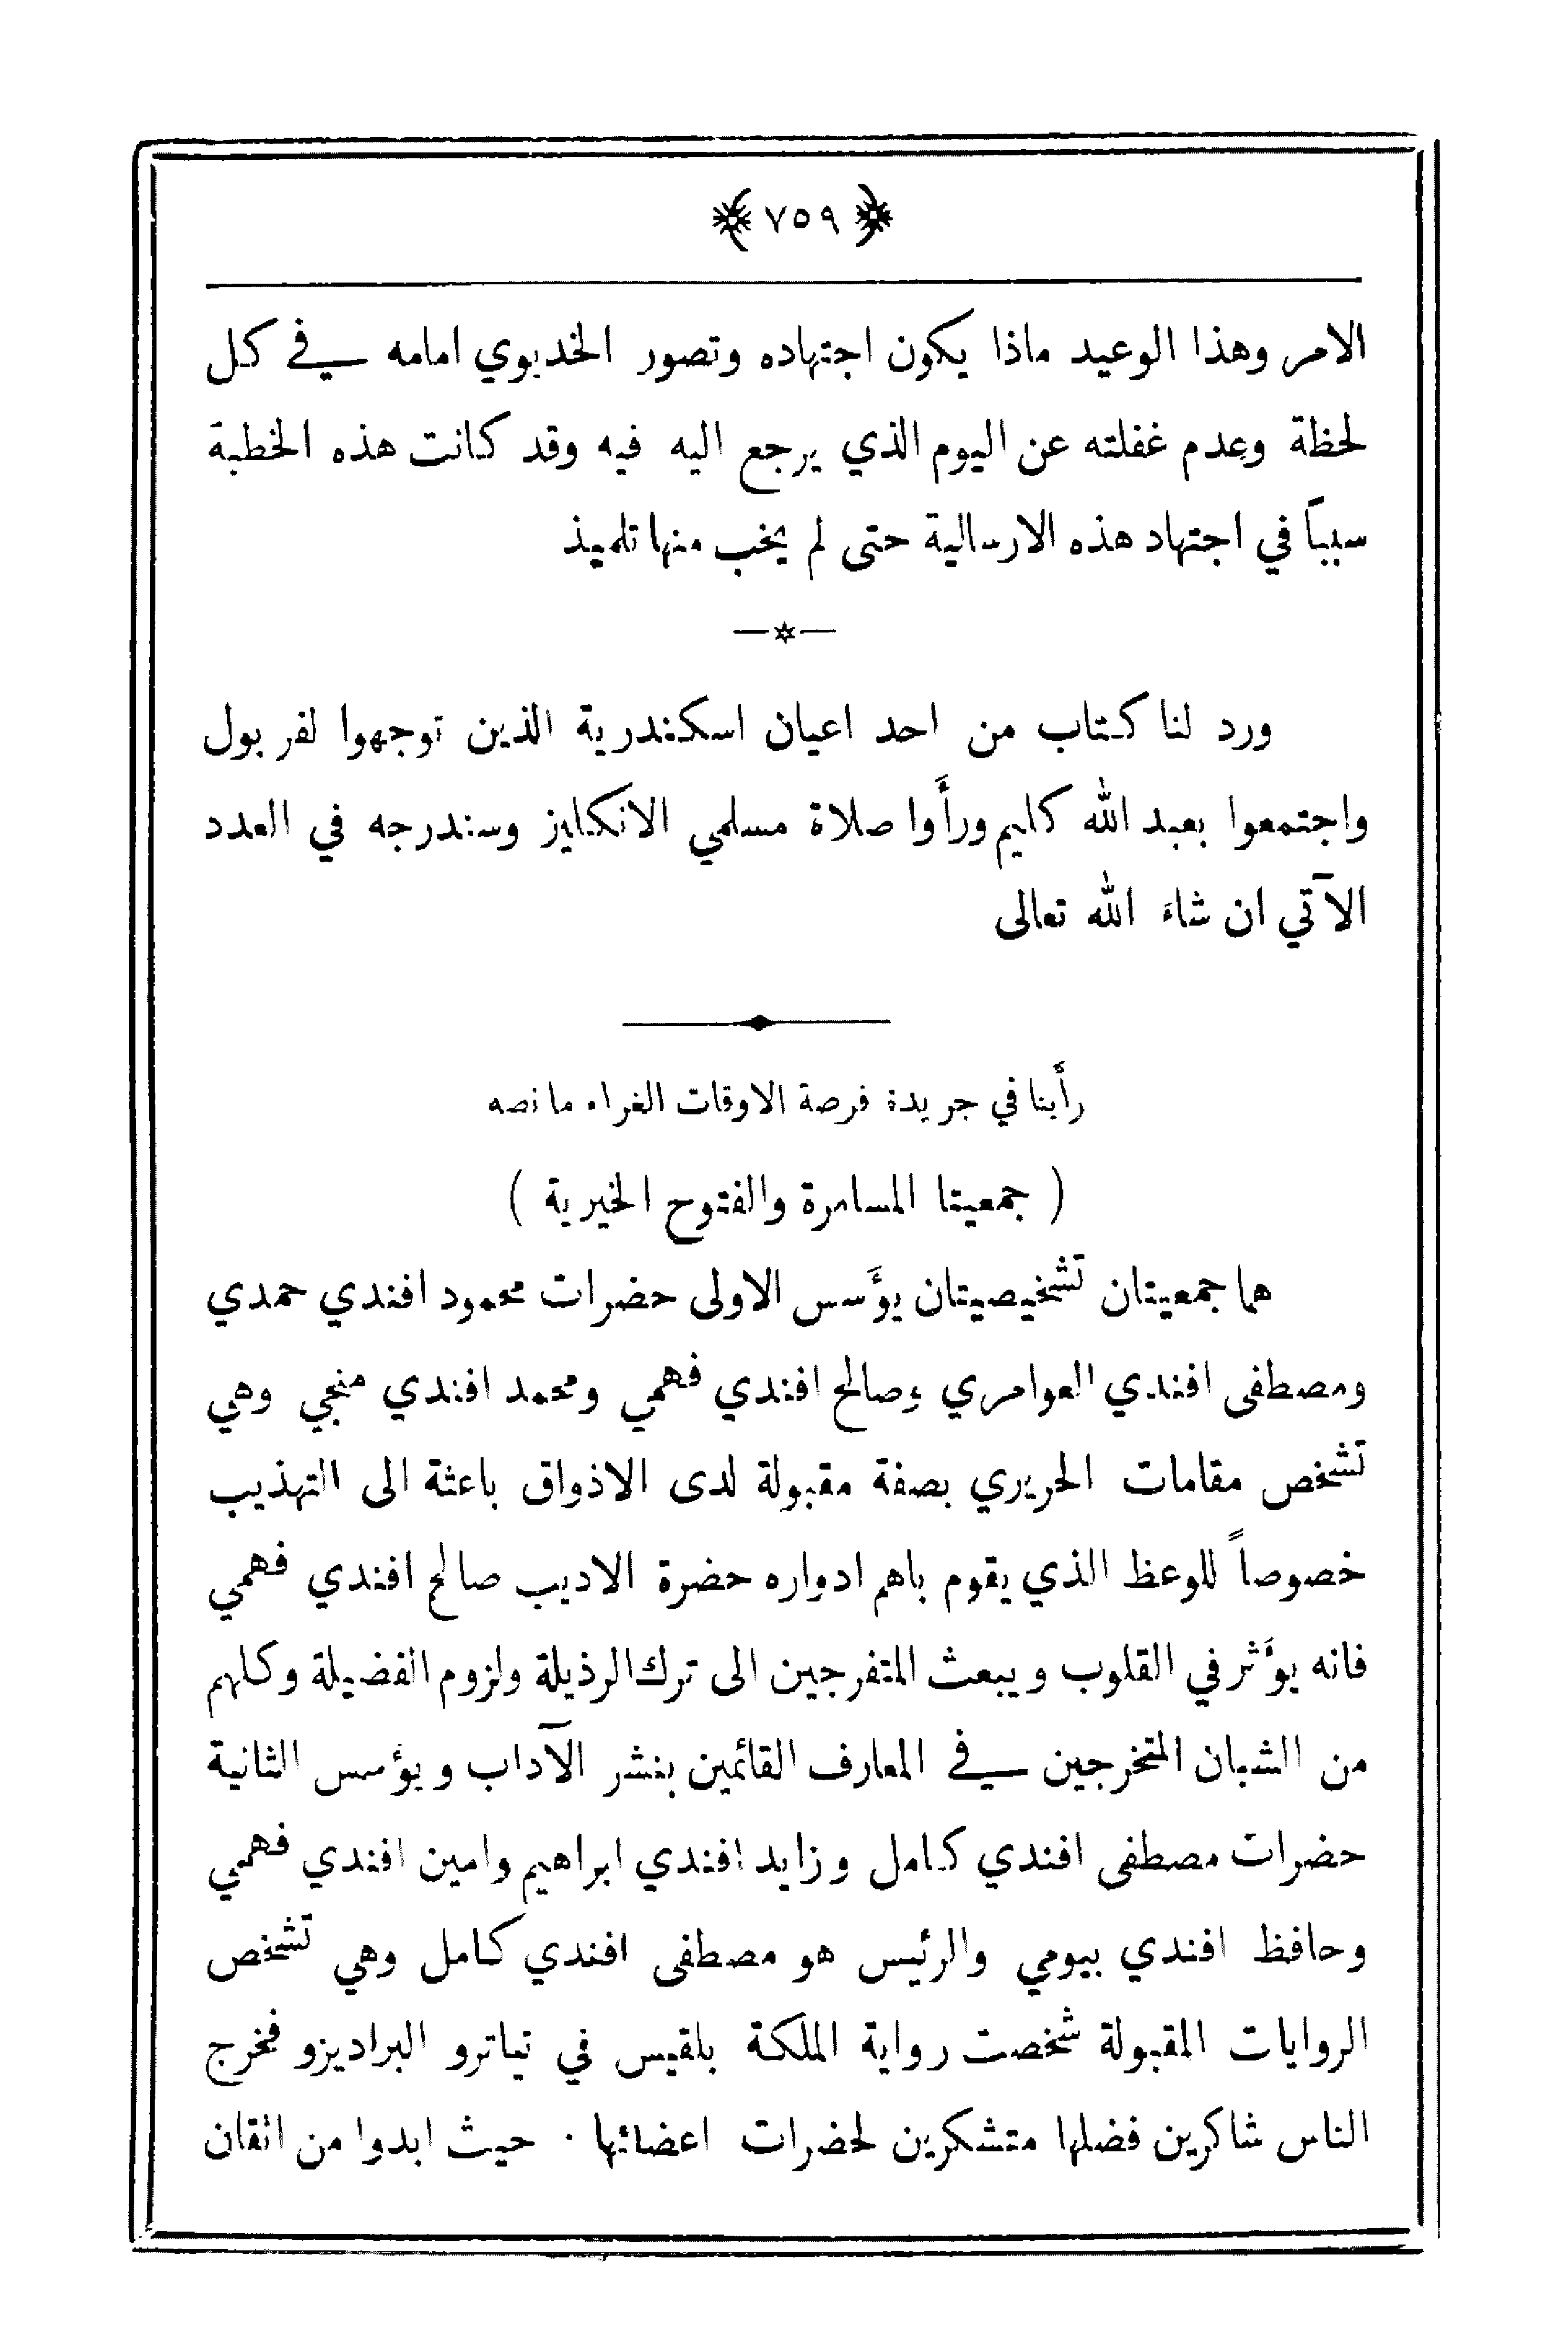 ﴿ ٧٥٩ ﴾
الامر وهذا الوعيد ماذا يكون اجتهاده وتصور الخديوي امامه في كل
لحظة وعدم غفلته عن اليوم الذي يرجع اليه فيه وقد كانت هذه الخطبة
سبباً في اجتهاد هذه الارسالية حتى لم يخب منها تلميذ
ورد لنا كتاب من احد اعيان اسكندرية الذين توجهوا لفربول
واجتمعوا بعبد الله كليم ورأَوا صلاة مسلمي الانكليز وسندرجه في العدد
الآتي ان شاءَ الله تعالى
رأَينا في جريدة فرصة الاوقات الغراء ما نصه
( جمعيتا المسامرة والفتوح الخيرية )
هما جمعيتان تشخيصيتان يؤَسس الاولى حضرات محمود افندي حمدي
ومصطفى افندي العوامري وصالح افندي فهمي ومحمد افندي منجي وهي
تشخص مقامات الحريري بصفة مقبولة لدى الاذواق باعثة الى التهذيب
خصوصاً للوعظ الذي يقوم باهم ادواره حضرة الاديب صالح افندي فهمي
فانه يؤَثر في القلوب ويبعث المتفرجين الى ترك الرذيلة ولزوم الفضيلة وكلهم
من الشبان المتخرجين في المعارف القائمين بنشر الآداب ويؤسس الثانية
حضرات مصطفى افندي كامل وزايد افندي ابراهيم وامين افندي فهمي
وحافظ افندي بيومي والرئيس هو مصطفى افندي كامل وهي تشخص
الروايات المقبولة شخصت رواية الملكة بلقيس في تياترو البراديزو فخرج
الناس شاكرين فضلها متشكرين لحضرات اعضائها · حيث ابدوا من اتقان